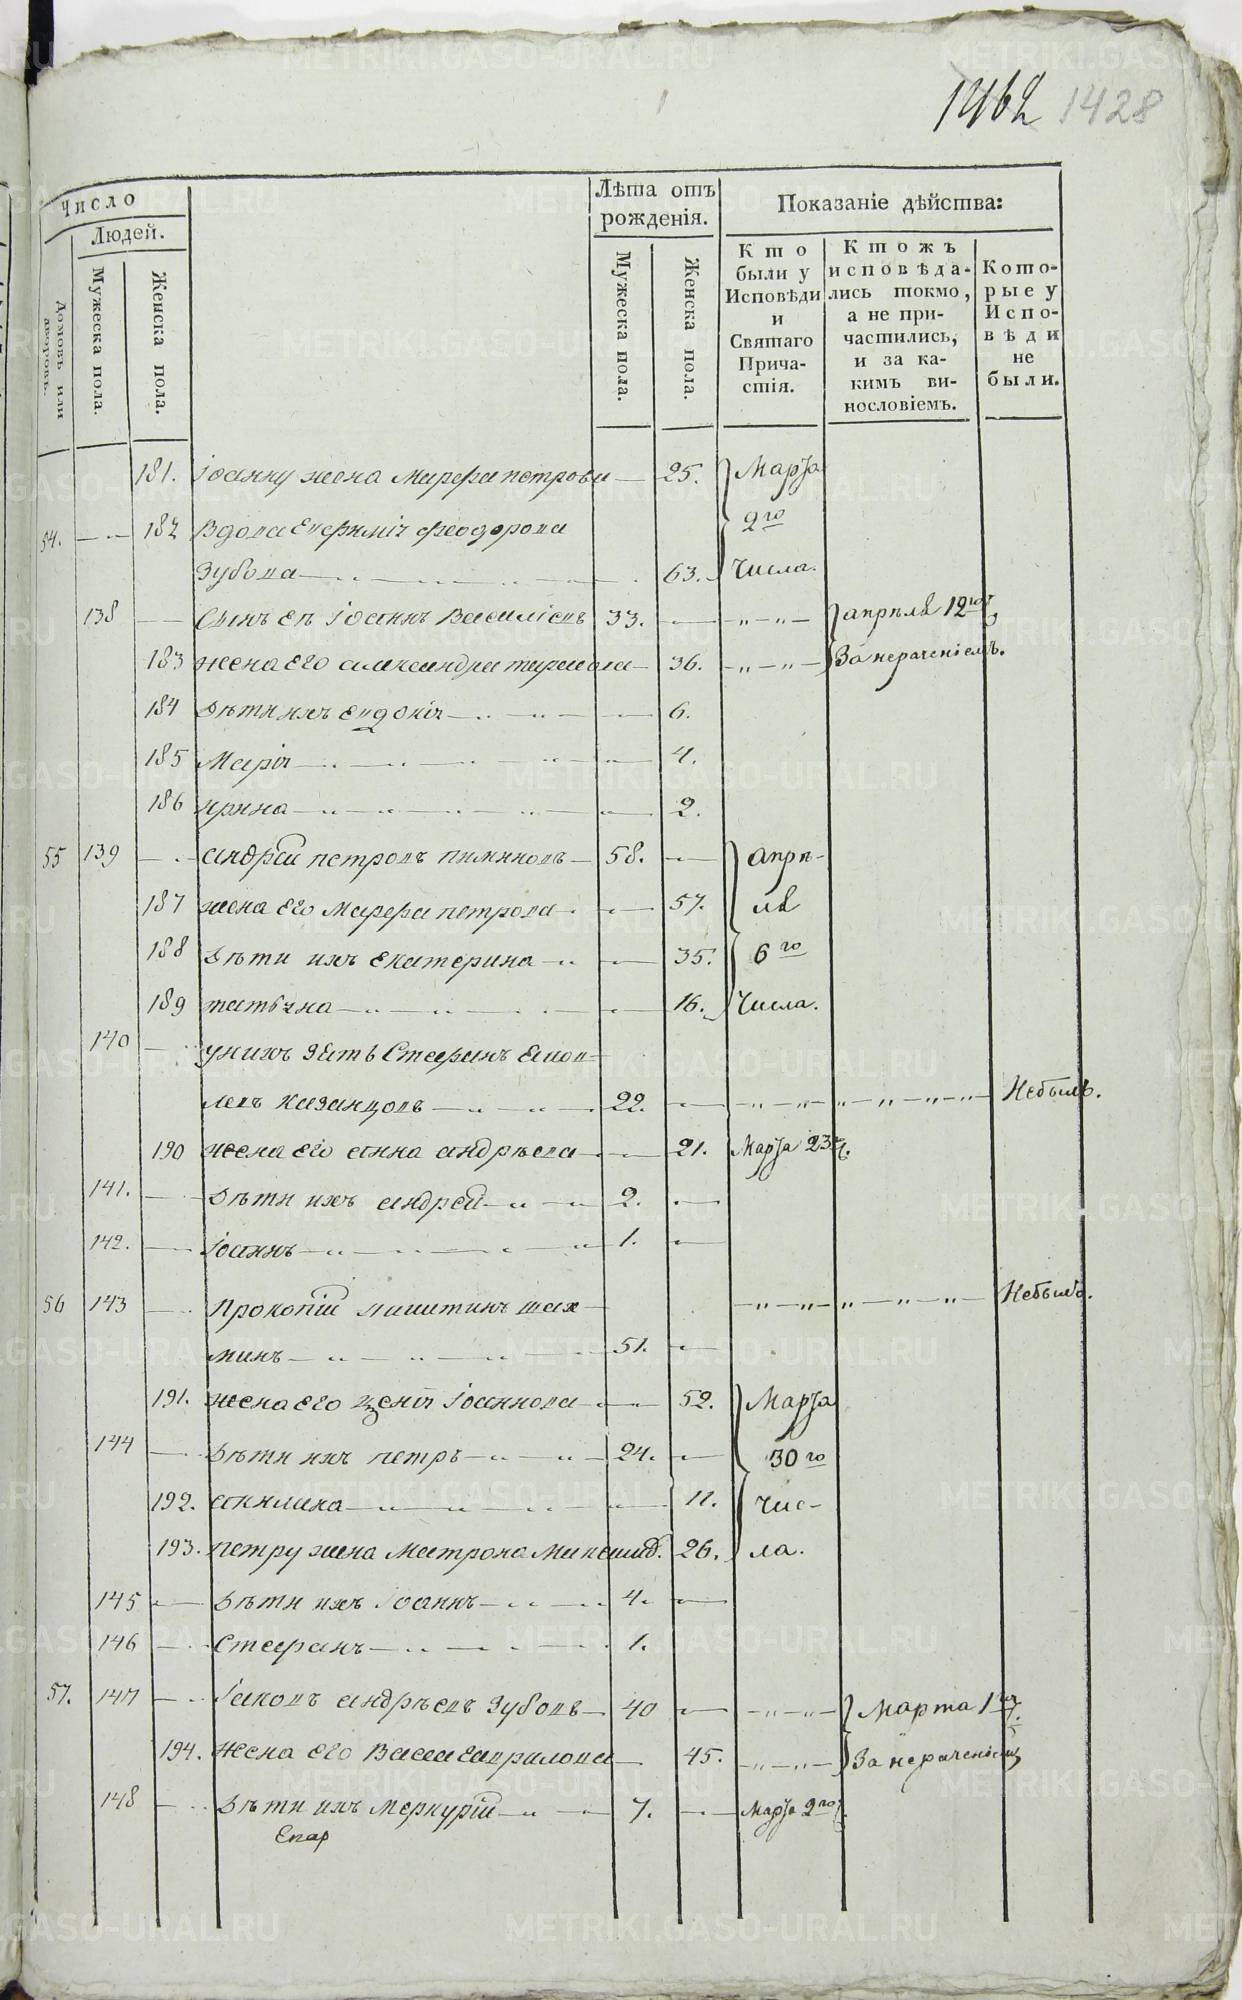 1462 1428
Число
Людей.
Домовъ или дворовъ.
Мужеска пола.
Женска пола.
Лѣта отъ рожденія.
Мужеска пола.
Женска пола.
Показаніе дѣйства:
Кто были у Исповѣди и Святаго Причастія.
Ктожъ исповѣдались токмо, а не причастились, и за какимъ винословіемъ.
Которые у Исповѣди не были.
181. Іоанну жена Марѳа петрова — 25. Марта
54. 182 Вдова Евфимія Феодорова 2го
Зубова 63. Числа.
138 Сынъ Ея Іоаннъ Василіевъ 33. апрѣля 12го
183 жена Его александра 36. За нераченіемъ.
184 Дѣти ихъ Евдокія 6.
185 Марія 4.
186 ирина 2.
55 139 андрей петровъ пиминовъ 58. апрѣ-
187 жена Его Марфа петрова 57. ля
188 Дѣти ихъ екатерина 35. 6го
189 татьяна 16. Числа.
140 у нихъ зять Стефанъ
Казанцовъ 22. Небылъ.
190 жена Его анна андрѣева 21. Марта 23
141. Дѣти ихъ андрей 2.
142. Іоаннъ 1.
56 143 Прокопій Никитинъ шах Небылъ.
минъ 51.
191. жена Его Ксенія Іоаннова 52. Марта
144 Дѣти ихъ петръ 24. 30го
192. акилина 11. Чис-
193. петру жена Матрона 26. ла.
145 Дѣти ихъ Іоаннъ 4.
146 Стефанъ 1.
57. 147 Іаковъ андрѣевъ Зубовъ 40 Марта 1го
194. жена Его Васса Гаврилова 45. За нераченіемъ
148 Дѣти ихъ Меркурій 7. Марта 2го